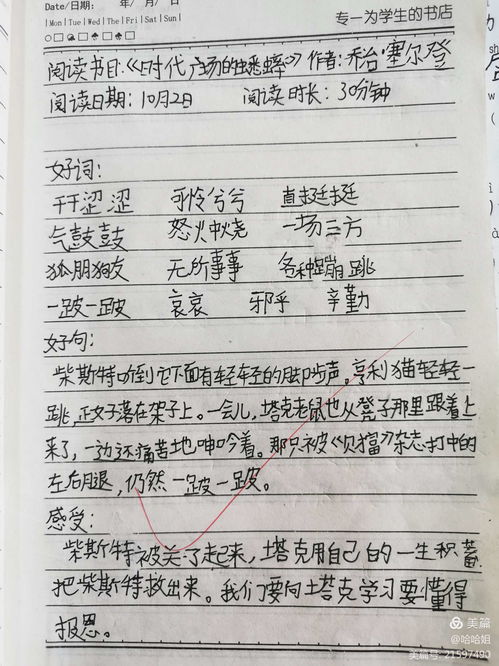 Date/日期: 年/ 月/ 日
Mon Tue Wed Thu Fri Sat Sun
专一为学生的书店
阅读书目:《时代广场的蟋蟀》 作者:乔治塞尔登
阅读日期:10月2日 阅读时长:30分钟
好词:
干干涩涩 可怜兮兮 直挺挺
气鼓鼓 怒火中烧 一场三方
狐朋狗友 无所事事 各种蹦跳
一跛一跛 哀哀 邪乎 辛勤
好句:
柴斯特听到它下面有轻轻的脚步声。亨利猫轻轻一
跳,正好落在架子上。一会儿,塔克老鼠也从凳子那里跟着上
来了,一边还痛苦地呻吟着。那只被《贝㺄》杂志打中的
左后腿,仍然一跛一跛。
感受:
柴斯特被关了起来,塔克用自己的一生积蓄
把柴斯特救出来。我们要向塔克学习要懂得
报恩。
美篇
@哈哈姐
美篇号: 21597490